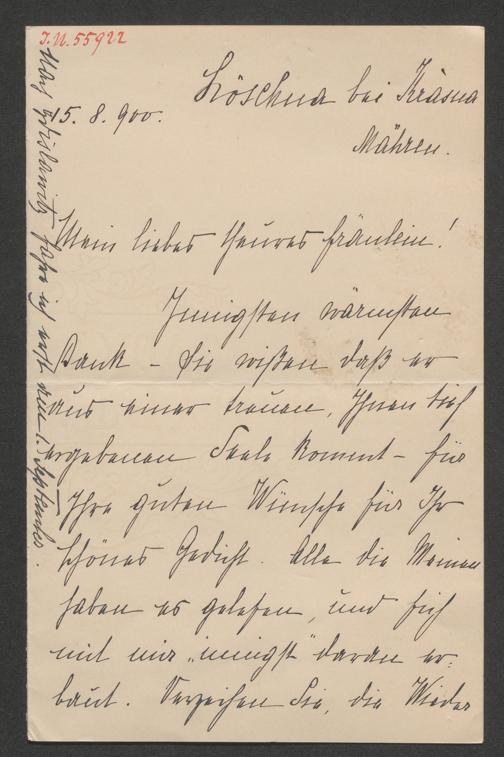 J.N. 55922
Löschna bei Krasna
15. 8. 900.
Mähren.
Mein liebes theures Fräulein!
Innigsten wärmsten
Dank – Sie wißen daß er
aus einer treuen, Ihnen tief
ergebenen Seele komt – für
Ihre guten Wünsche für Ihr
schönes Gedicht. Alle die Meinen
haben es gelesen, und sich
mit mir „innigst" daran er-
baut. Verzeihen Sie, die Wieder
Nach Zdislawitz fahre ich erst am 1. September.